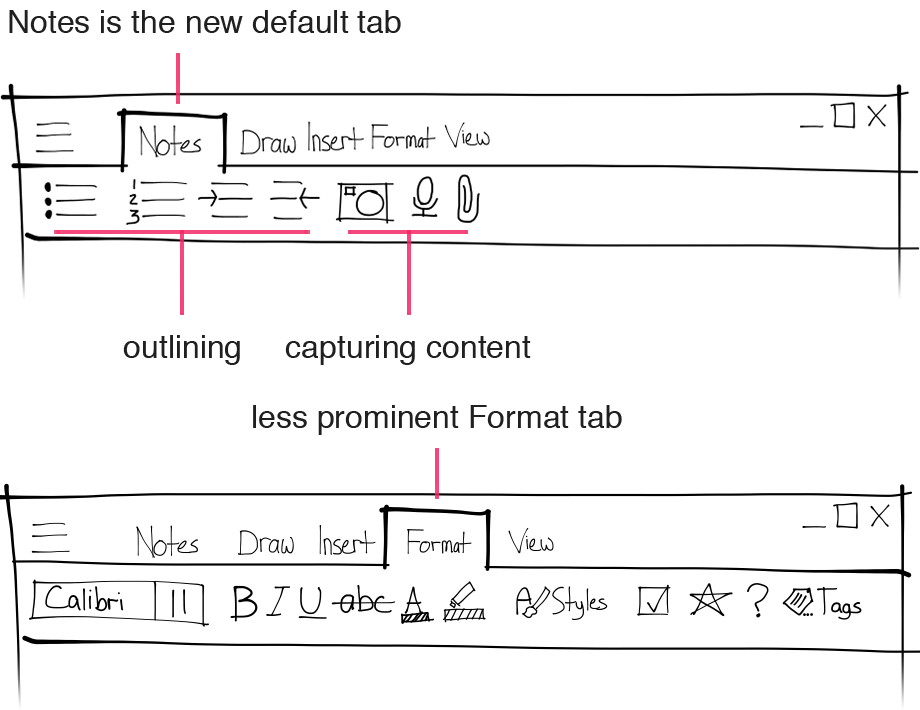 Notes is the new default tab
Notes Draw Insert Format View
1
2
3
outlining capturing content
less prominent Format tab
Notes Draw Insert Format View
Calibri 11 B I U abc A A Styles ? Tags